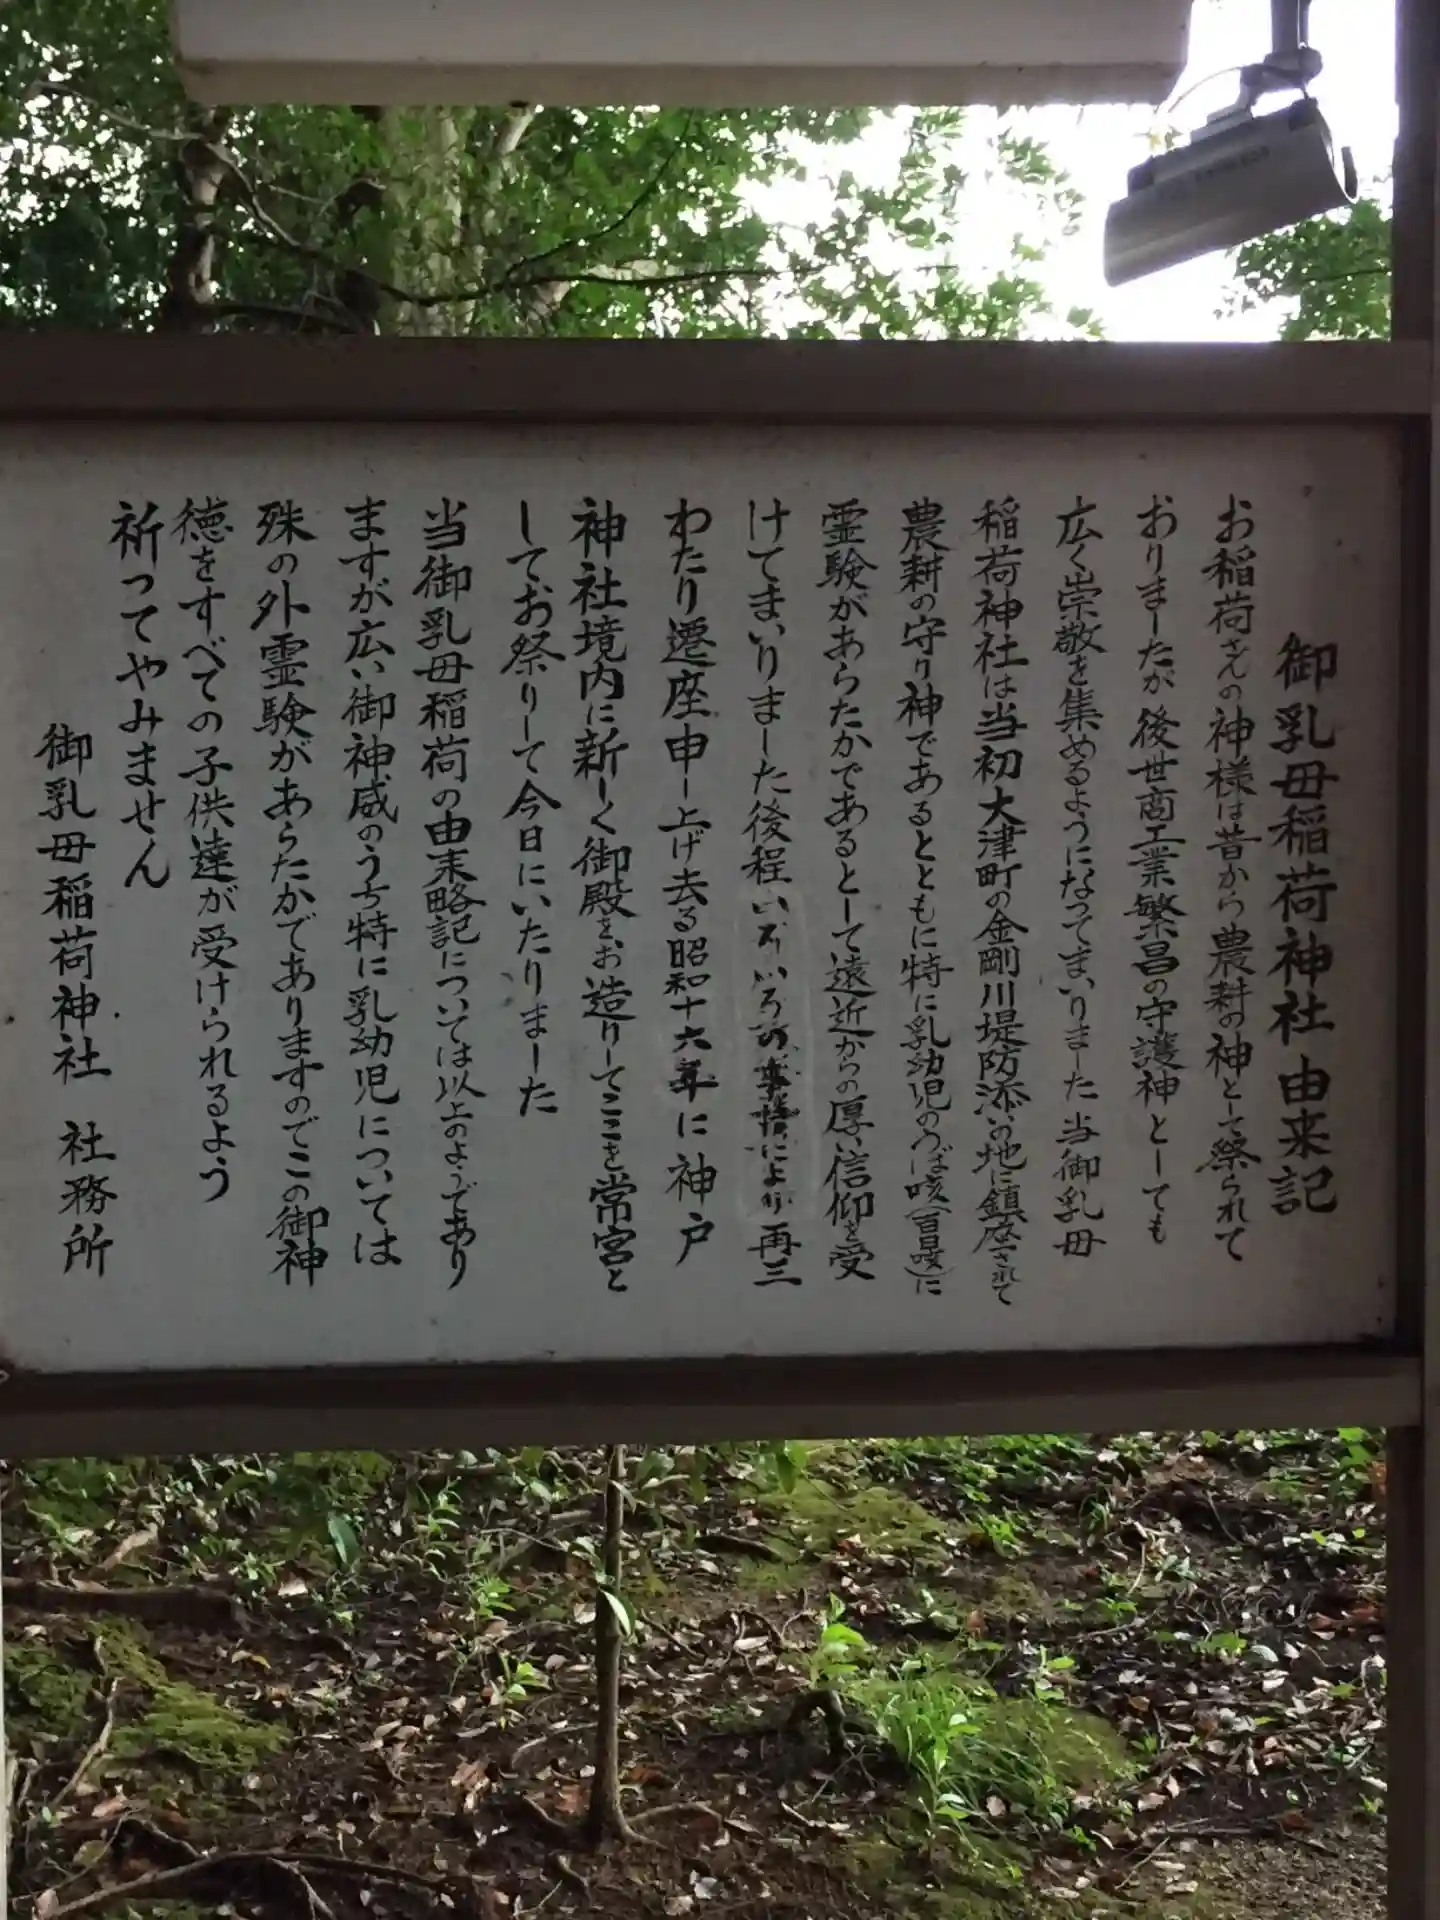 御乳母稲荷神社由来記
お稲荷さんの神様は昔から農耕の神として祭られて
おりましたが後世商工業繁昌の守護神としても
広く崇敬を集めるようになってまいりました当御乳母
稲荷神社は当初大津町の金剛川堤防添の地に鎮座されて
農耕の守り神であるとともに特に乳幼児のつば咳(百日咳)に
霊験があらたかであるとして遠近からの厚い信仰を受
けてまいりました後程いろいろの事情により再三
わたり遷座申し上げ去る昭和十六年に神戸
神社境内に新しく御殿をお造りしてここを常宮と
してお祭りして今日にいたりました
当御乳母稲荷の由来略記については以上のようであり
ますが広い御神威のうち特に乳幼児については
殊の外霊験があらたかでありますのでこの御神
徳をすべての子供達が受けられるよう
祈ってやみません
御乳母稲荷神社 社務所